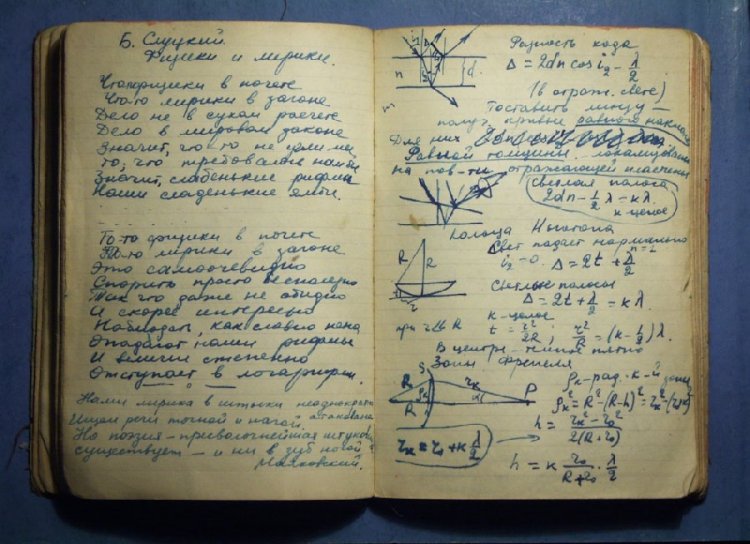 Б. Слуцкий.
Физики и лирики.
Что-то физики в почете
Что-то лирики в загоне
Дело не в сухом расчете
Дело в мировом законе
Значит, что-то не
то, что требовалось нам бы
Значит, слабенькие рифмы
Наши сладенькие ямбы.
То-то физики в почете
То-то лирики в загоне
Это самоочевидно
Спорить просто бесполезно
Так что даже не обидно
А скорее интересно
Наблюдать, как словно пена
Опадают наши рифмы
И величие степенно
Отступает в логарифмы.
Нами лирика в штыки неоднократно атакована
Ищем речи точной и нагой.
Но поэзия — штуковина
существует — и ни в зуб ногой
Маяковский.
n
d
Разность хода
Δ = 2dn cos i₂ - λ/2
(в отраж. свете)
Поставить линзу —
получ. кривые равного наклона
Для них
Равной толщины. локализованы
на пов-ти отражающей пластинки
светлая полоса
2dn - 1/2 λ = kλ.
к целое
Кольца Ньютона
Свет падает нормально
n=1
i₂ = 0. Δ = 2t + λ/2
R
R
r
Светлые полосы
Δ = 2t + λ/2 = kλ.
к-целое
при r≪R t = r²/2R; r²/R = (k - 1/2) λ.
В центре темное пятно
Зоны Френеля
S
R
R
P
ρₖ - рад. к-й зоны
ρₖ² = R² - (R-h)² = rₖ² - (r₀+h)²
h = (rₖ² - r₀²)/2(R+r₀)
rₖ = r₀ + k λ/2
h = k r₀/(R+r₀) · λ/2